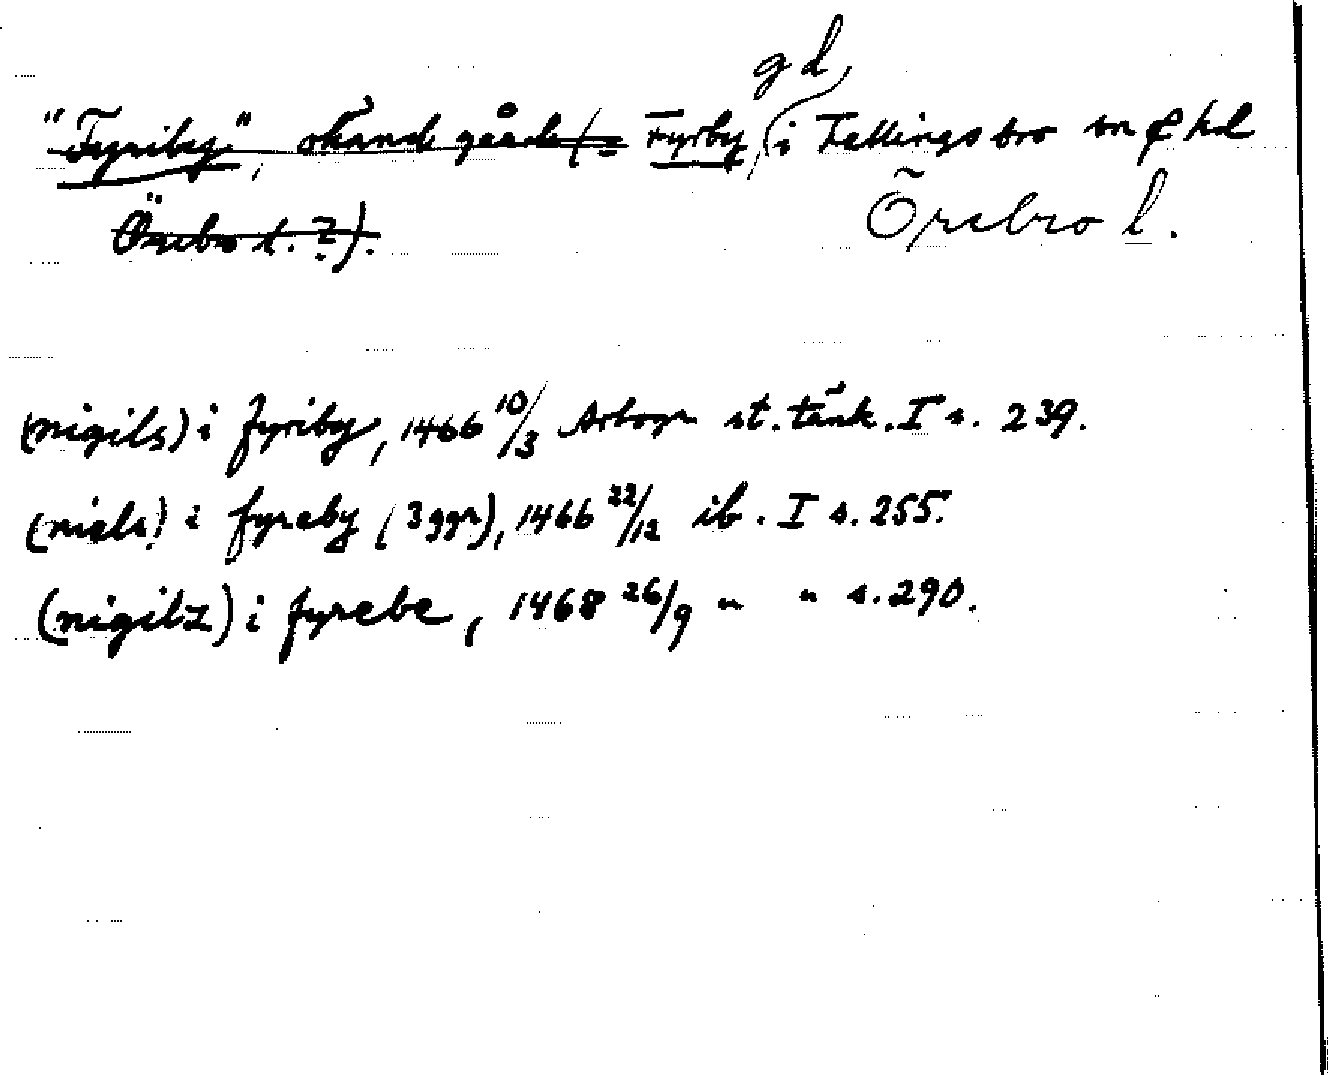 gd,
"Fyriby", okänd gård (= Fyrby, i Fellingsbro sn o hd
Örebro l. ?). Örebro l.
(nigils) i fyriby, 1466 10/3 Arboga st. tänk. I s. 239.
(niels) i fyreby (3 ggr), 1466 22/12 ib. I s. 255.
(nigilz) i fyrebe, 1468 26/9 " " s. 290.